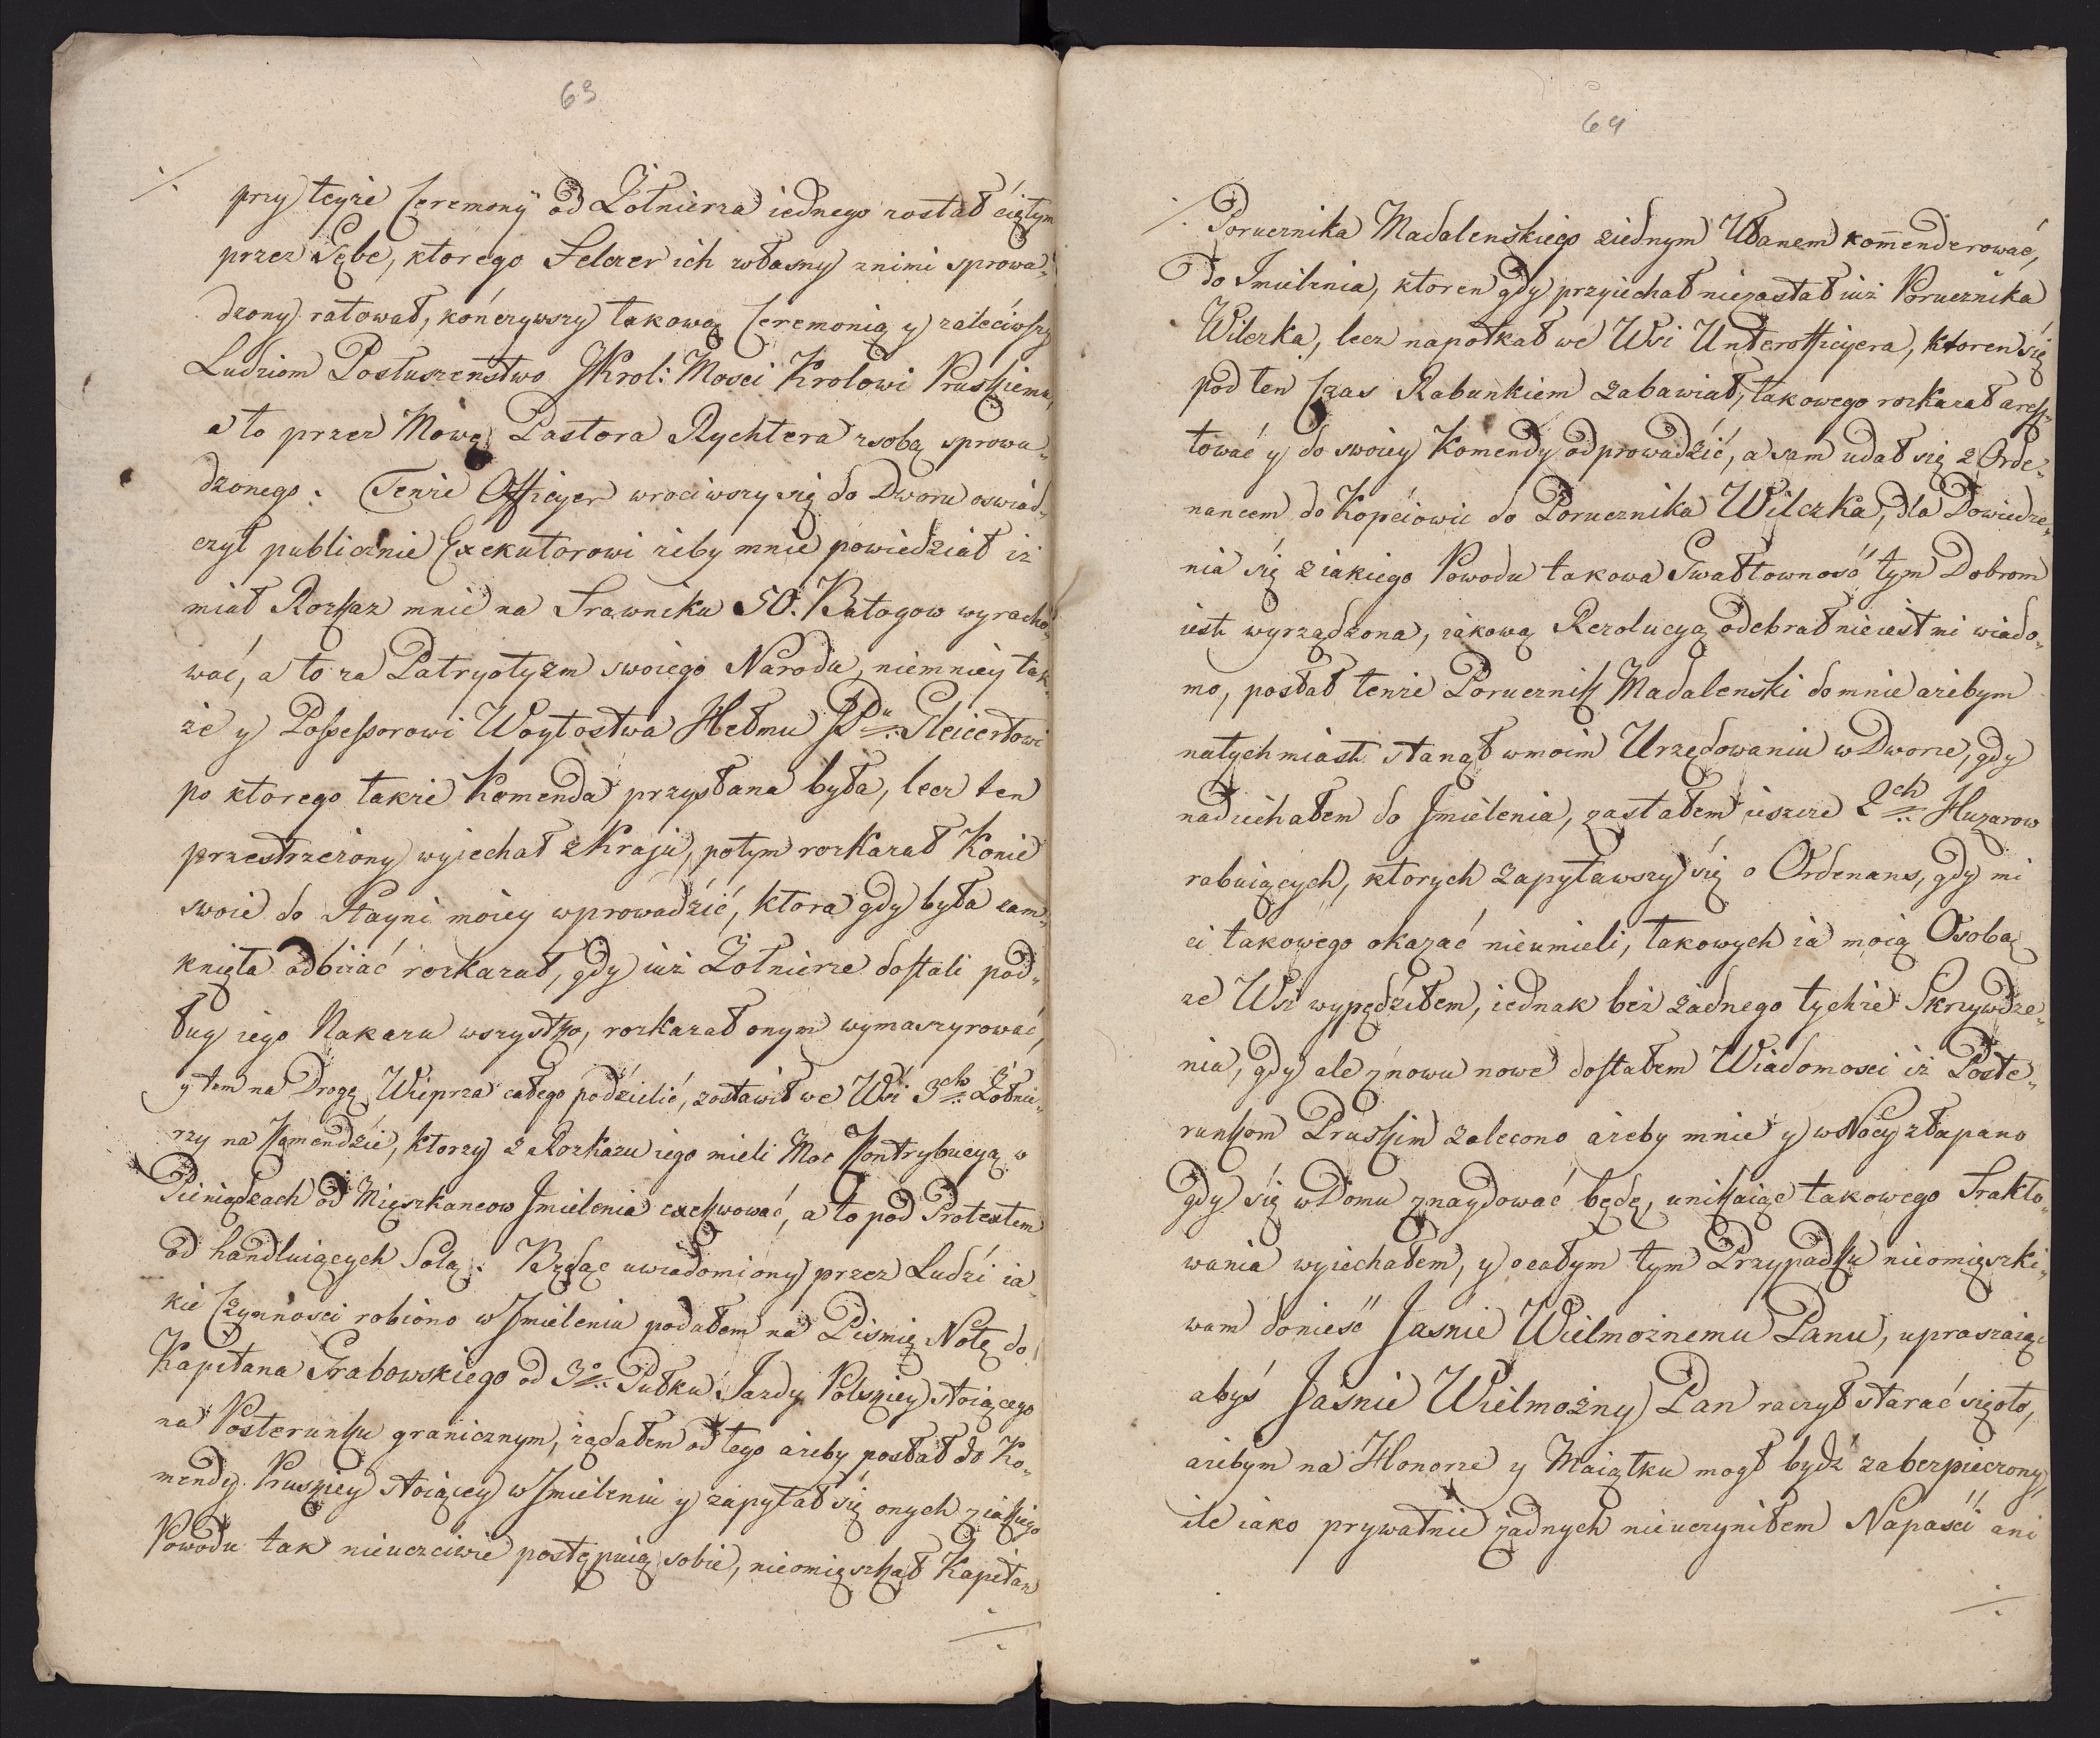 63
./. przy teyże Ceremonÿ od Żołnierza iednego został ciętym
przez Gębe, ktorego Felczer ich własny z nimi sprowa„
dzony ratował, kończywszy takową Ceremonią y zaleciwszy
Ludziom Posłuszeństwo JKrol: Mosci Krolowi Pruskiemu,
a to przez Mowę Pastora Rychtera z sobą sprowa„
dzonego: Tenże Officyer wrociwszy się do Dworu oswiad„
czył publicznie Exekutorowi żeby mnie powiedział iż
miał Rozkaz mnie na Trawniku 50. Batogow wyracho„
wać, a to za Patryotyzm swoiego Narodu, niemniey tak„
że y Possessorowi Woytostwa Hełmu JPu Gleicertowi
po ktorego także Komenda przysłana była, lecz ten
przestrzeżony wyjechał z Kraju, potym rozkazał Konie
swoie do Stayni moiey wprowadzić, ktora gdy była zam„
knięta odbiiać rozkazał, gdy iuż Żołnierze dostali pod„
ług iego Nakazu wszystko, rozkazał onym wymaszyrować,
y tem na Drogę Wieprza całego podzielić, zostawił we Wsi 3ch Żołnie„
rzy na Komendzie, ktorzy z Rozkazu iego mieli Moc Kontrybucyą w
Pieniądzach od Mięszkancow Jmielenia exekwować, a to pod Protextem
od handluiących Solą: Będąc uwiadomiony przez Ludzi ia„
kie Czynnosci robiono w Jmieleniu podałem na Piśmię Notę do
Kapitana Grabowskiego od 3o Pułku Jazdy Polskiey stoiącego
na Posterunku granicznym, żądałem od tego ażeby posłał do Ko„
mendy Pruskiey stoiącey w Jmieleniu y zapytał się onych z iakiego
Powodu tak nieuczciwie postępuią sobie, nieomięszkał Kapitan
./.
64
./. Porucznika Madalenskiego z iednym Ułanem kommenderować,
do Jmielenia, ktoren gdy przyiechał niezastał iuż Porucznika
Wilczka, lecz napotkał we Wsi Unterofficyera, ktoren się
pod ten Czas Rabunkiem zabawiał, takowego rozkazał aresz„
tować y do swoiey Komendy odprowadzić, a sam udał się z Orde„
nancem do Kopciowic do Porucznika Wilczka, dla Dowiedze„
nia się z iakiego Powodu takowa Gwałtowność tym Dobrom
iest wyrządzona, iakową Rezolucyą odebrał nieiest mi wiado„
mo, posłał tenże Porucznik Madalenski do mnie ażebym
natychmiast stanął w moim Urzędowaniu w Dworze, gdy
nadiechałem do Jmielenia, zastałem ieszcze 2ch Huzarow
rabuiących, ktorych zapytawszy się o Ordenans, gdy mi
ci takowego okazać nieumieli, takowych ia moią Osobą
ze Wsi wypędziłem, iednak bez żadnego tychże Skrzywdze„
nia, gdy ale znowu nowe dostałem Wiadomosci iż Poste„
runkom Pruskim zalecono ażeby mnie y w Nocy złapano
gdy się w Domu znaydować będę, unikaiąc takowego Trakto„
wania wyiechałem, y o całym tym Przypadku nieomięszki„
wam donieść Jasnie Wielmożnemu Panu, upraszaiąc
abyś Jaśnie Wielmożny Pan raczył starać się o to,
ażebym na Honorze y Maiątku mogł bydź zabezpieczony,
ile iako prywatnie żadnych nieuczyniłem Napaści ani
./.